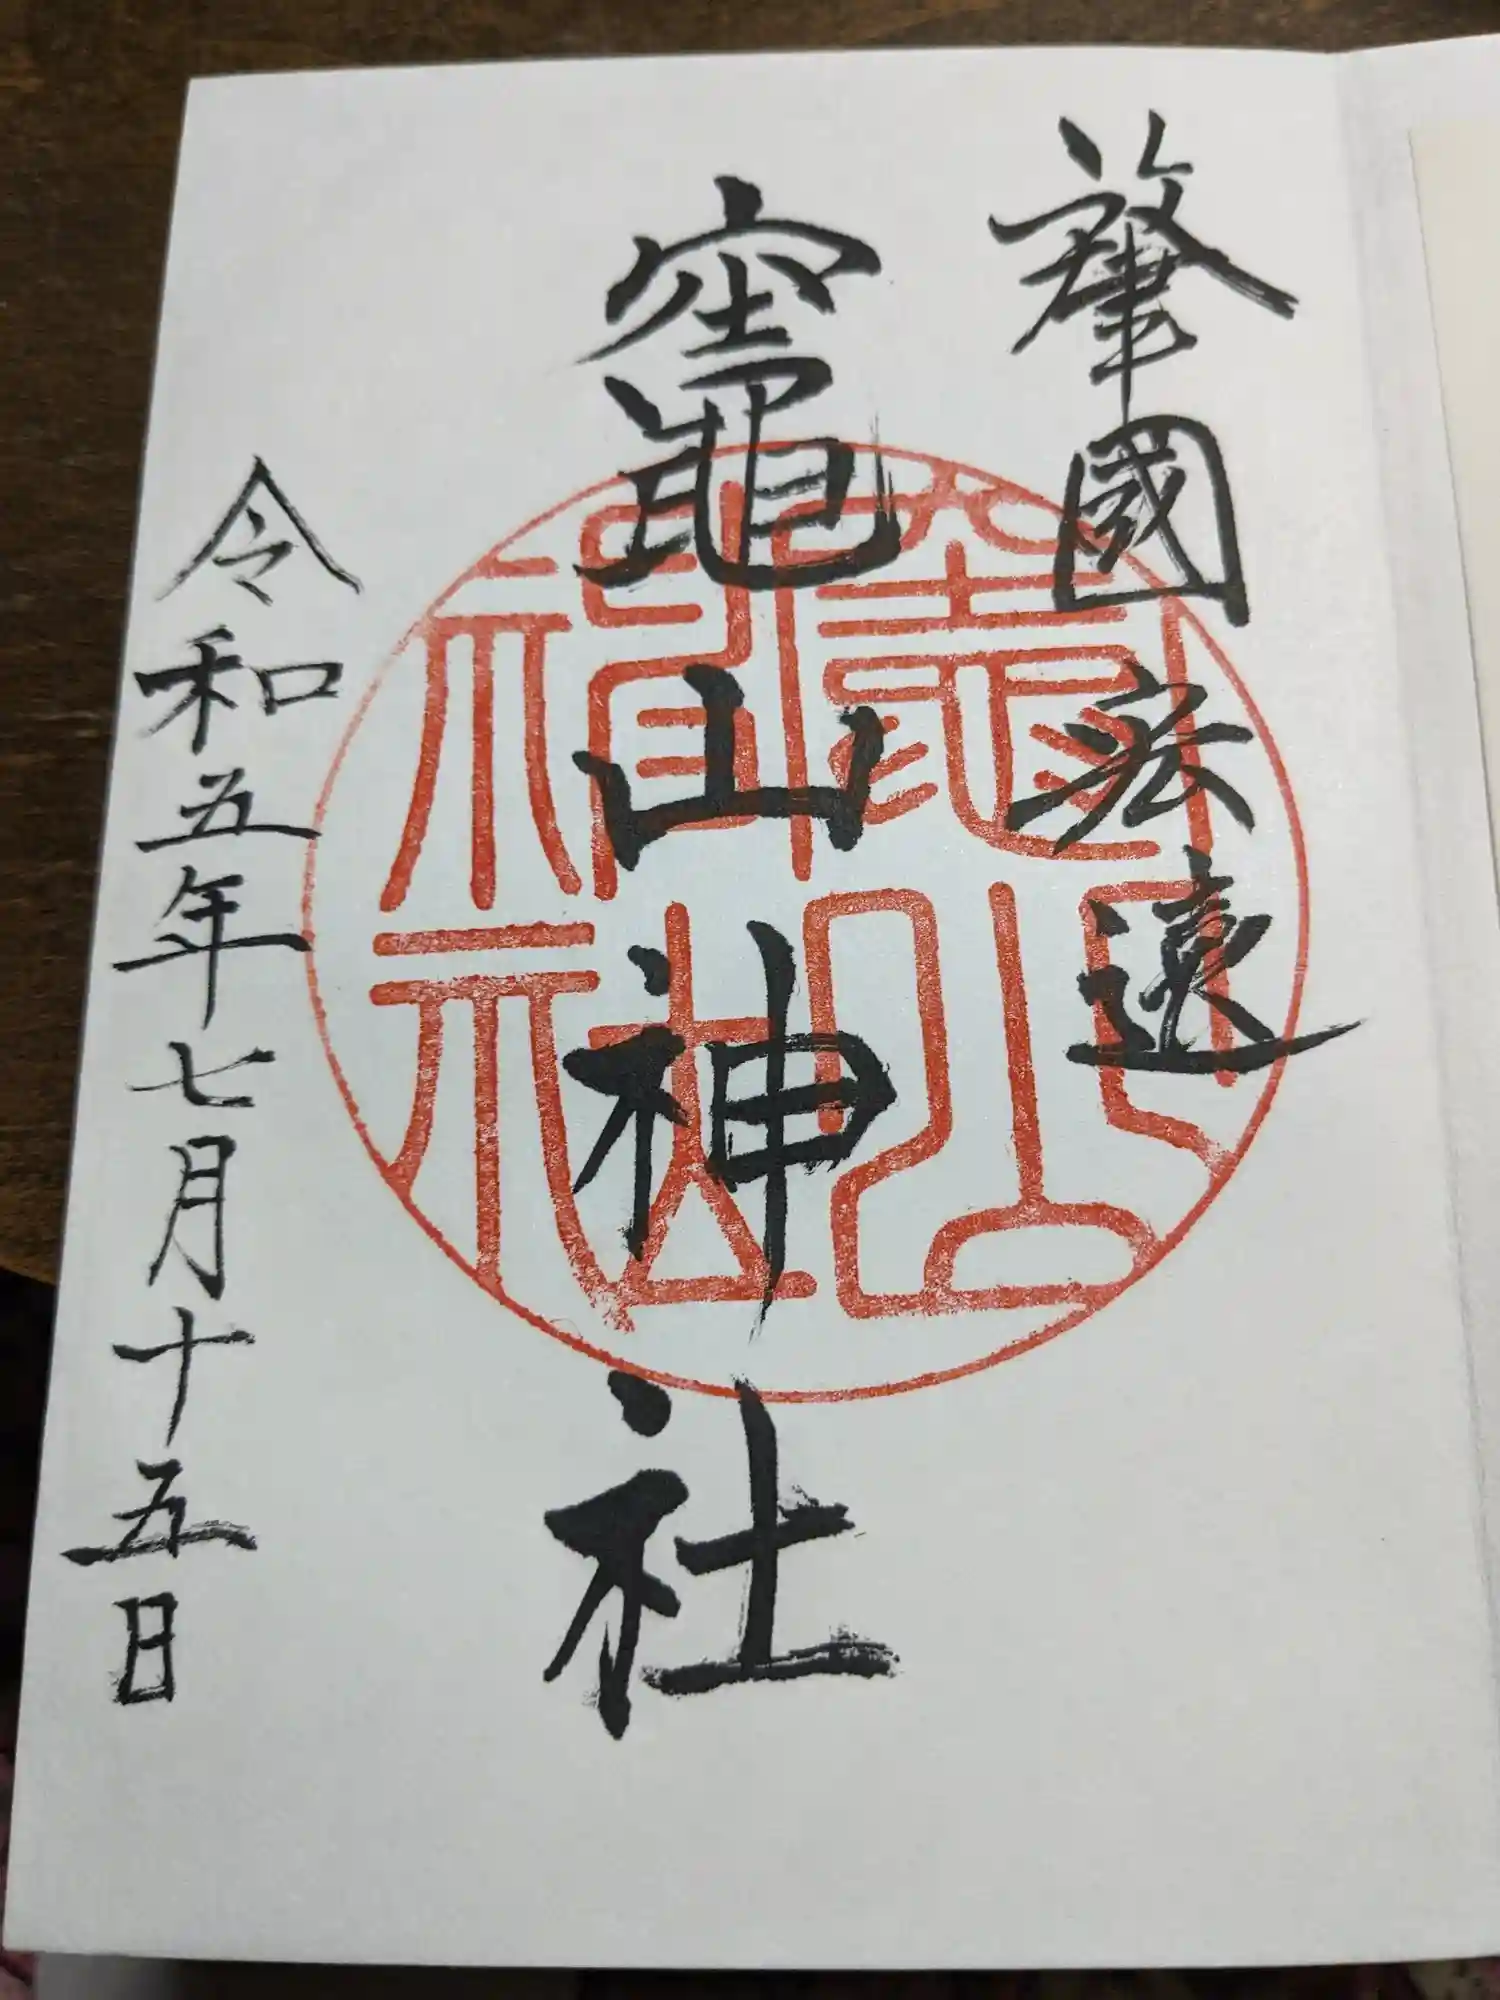 肇國宏遠
竈山神社
令和五年七月十五日